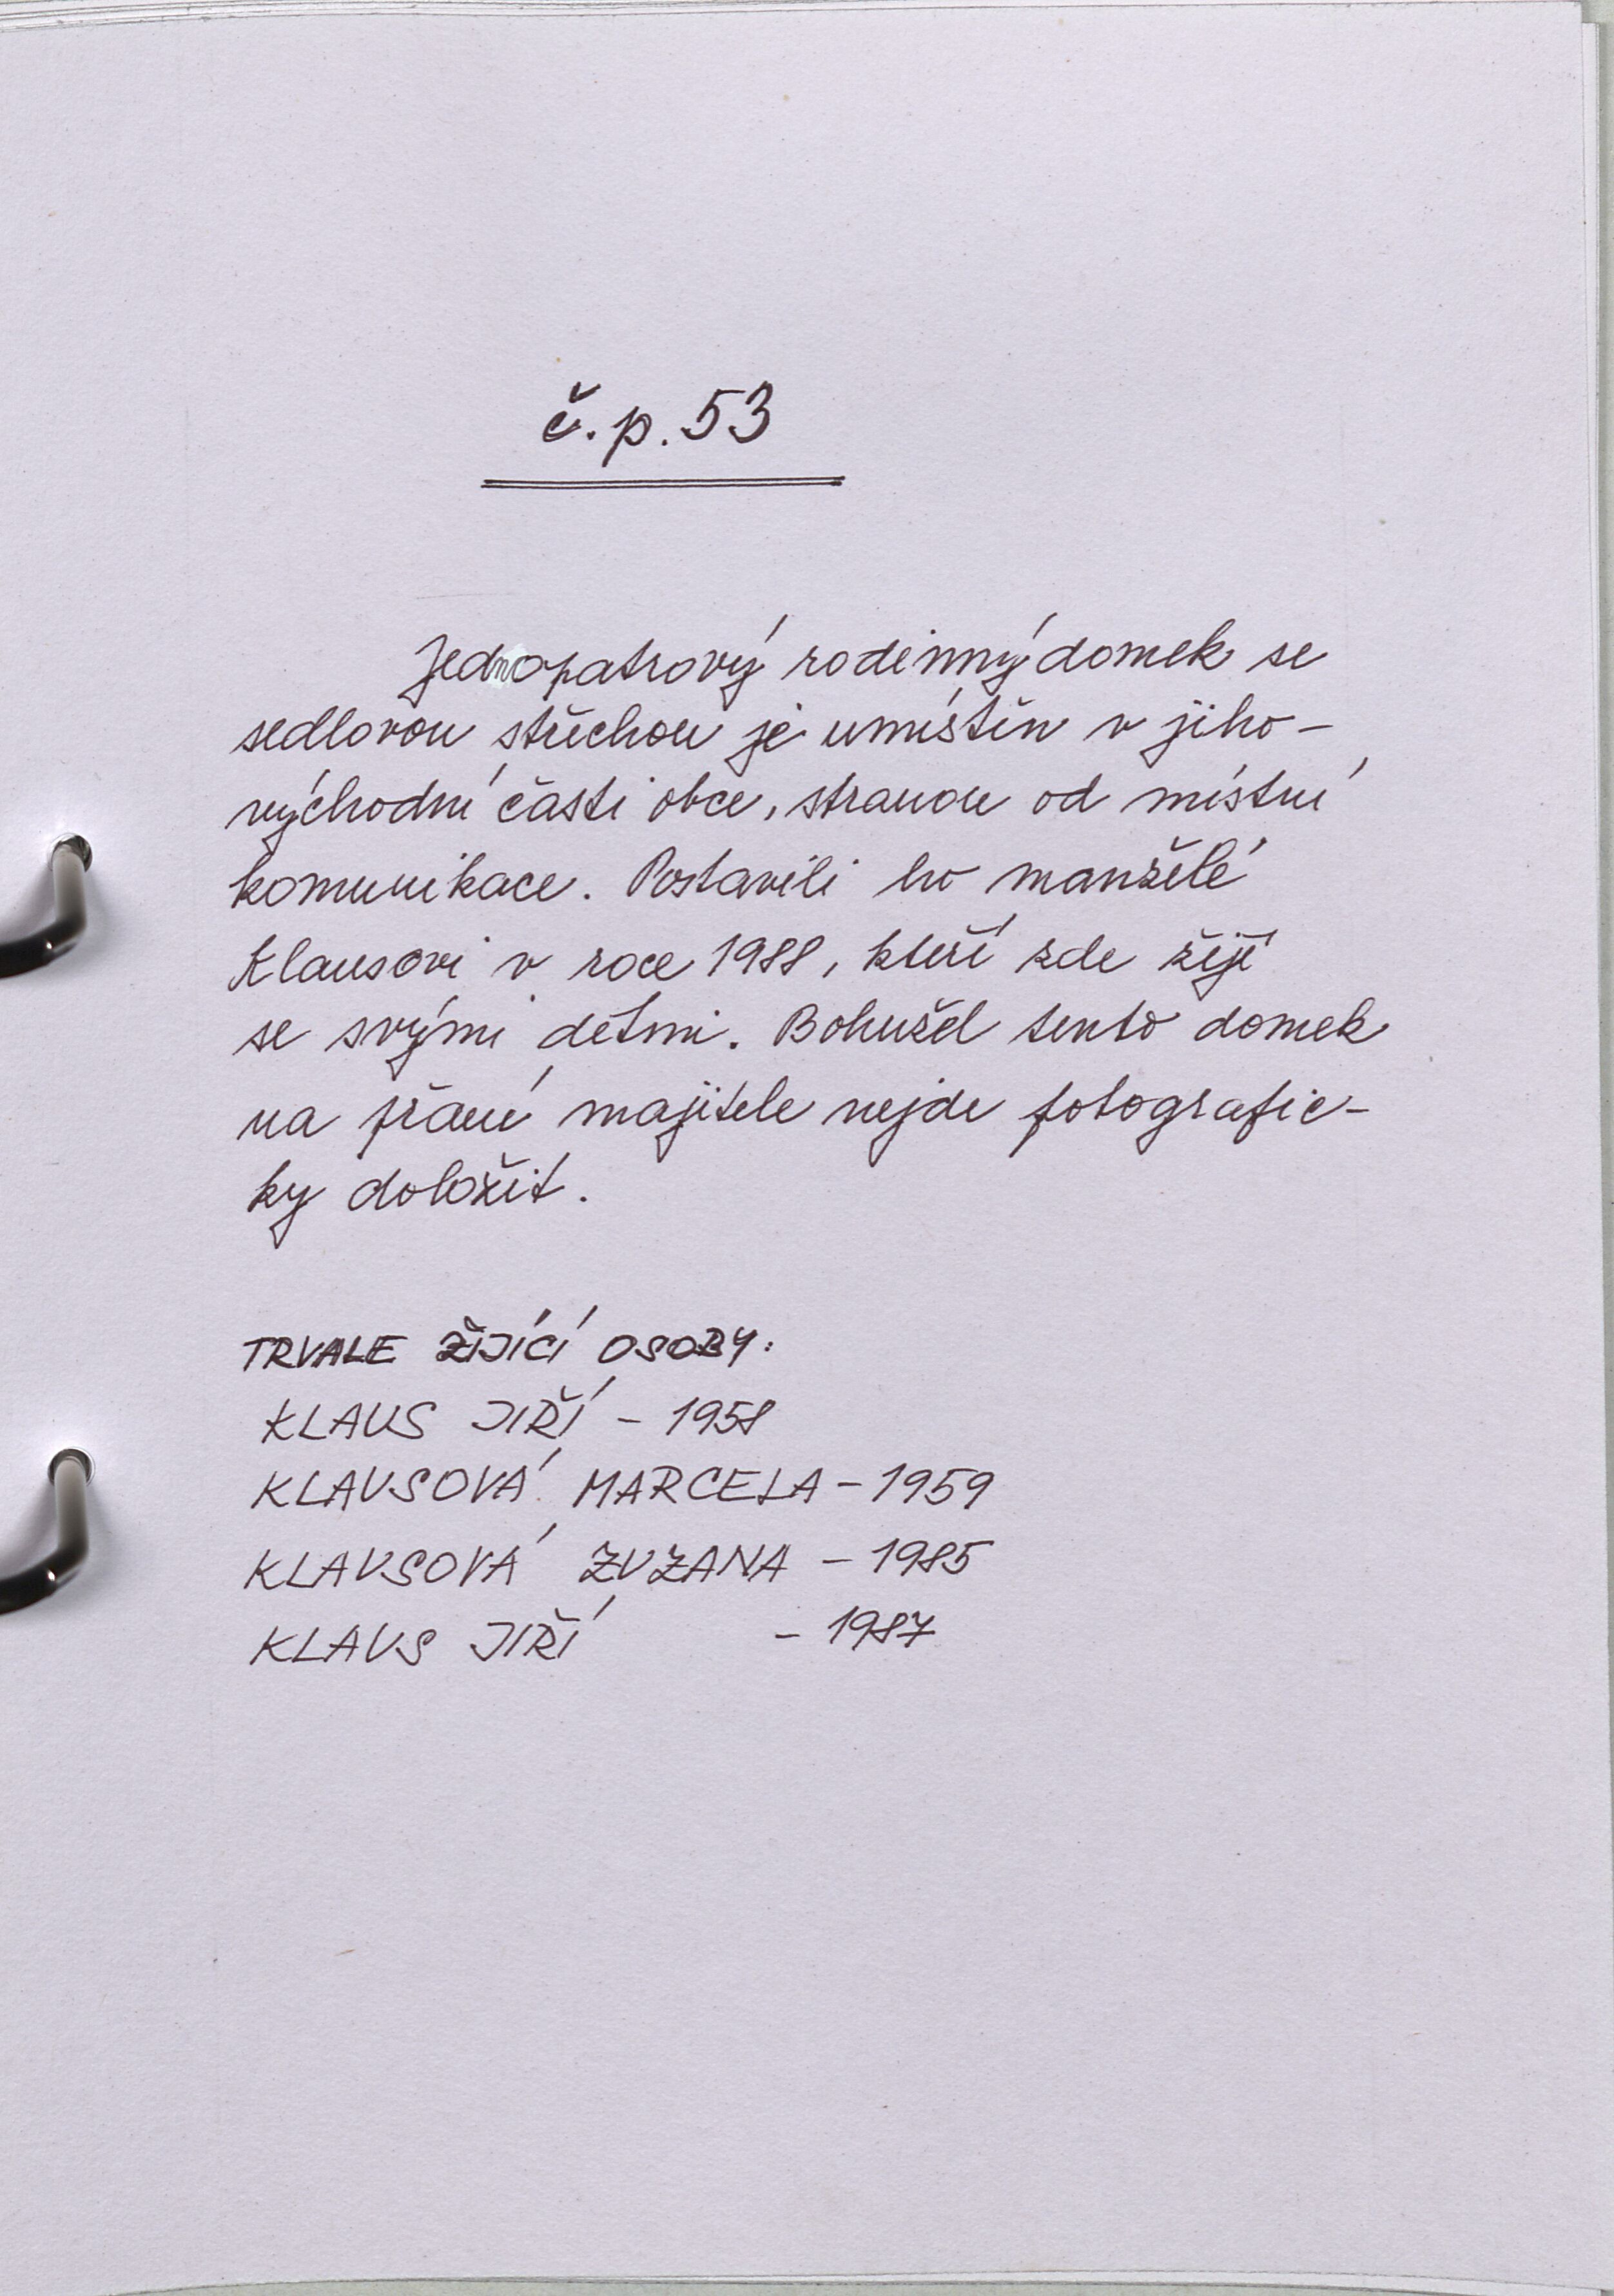 č.p. 53
Jednopatrový rodinný domek se
sedlovou střechou je umístěn v jiho-
východní části obce, stranou od místní
komunikace. Postavili ho manželé
Klausovi v roce 1988, kteří zde žijí
se svými dětmi. Bohužel tento domek
na přání majitele nejde fotografic-
ky doložit.
TRVALE ŽIJÍCÍ OSOBY:
KLAUS JIŘÍ - 1958
KLAUSOVÁ MARCELA - 1959
KLAUSOVÁ ZUZANA - 1985
KLAUS JIŘÍ - 1987